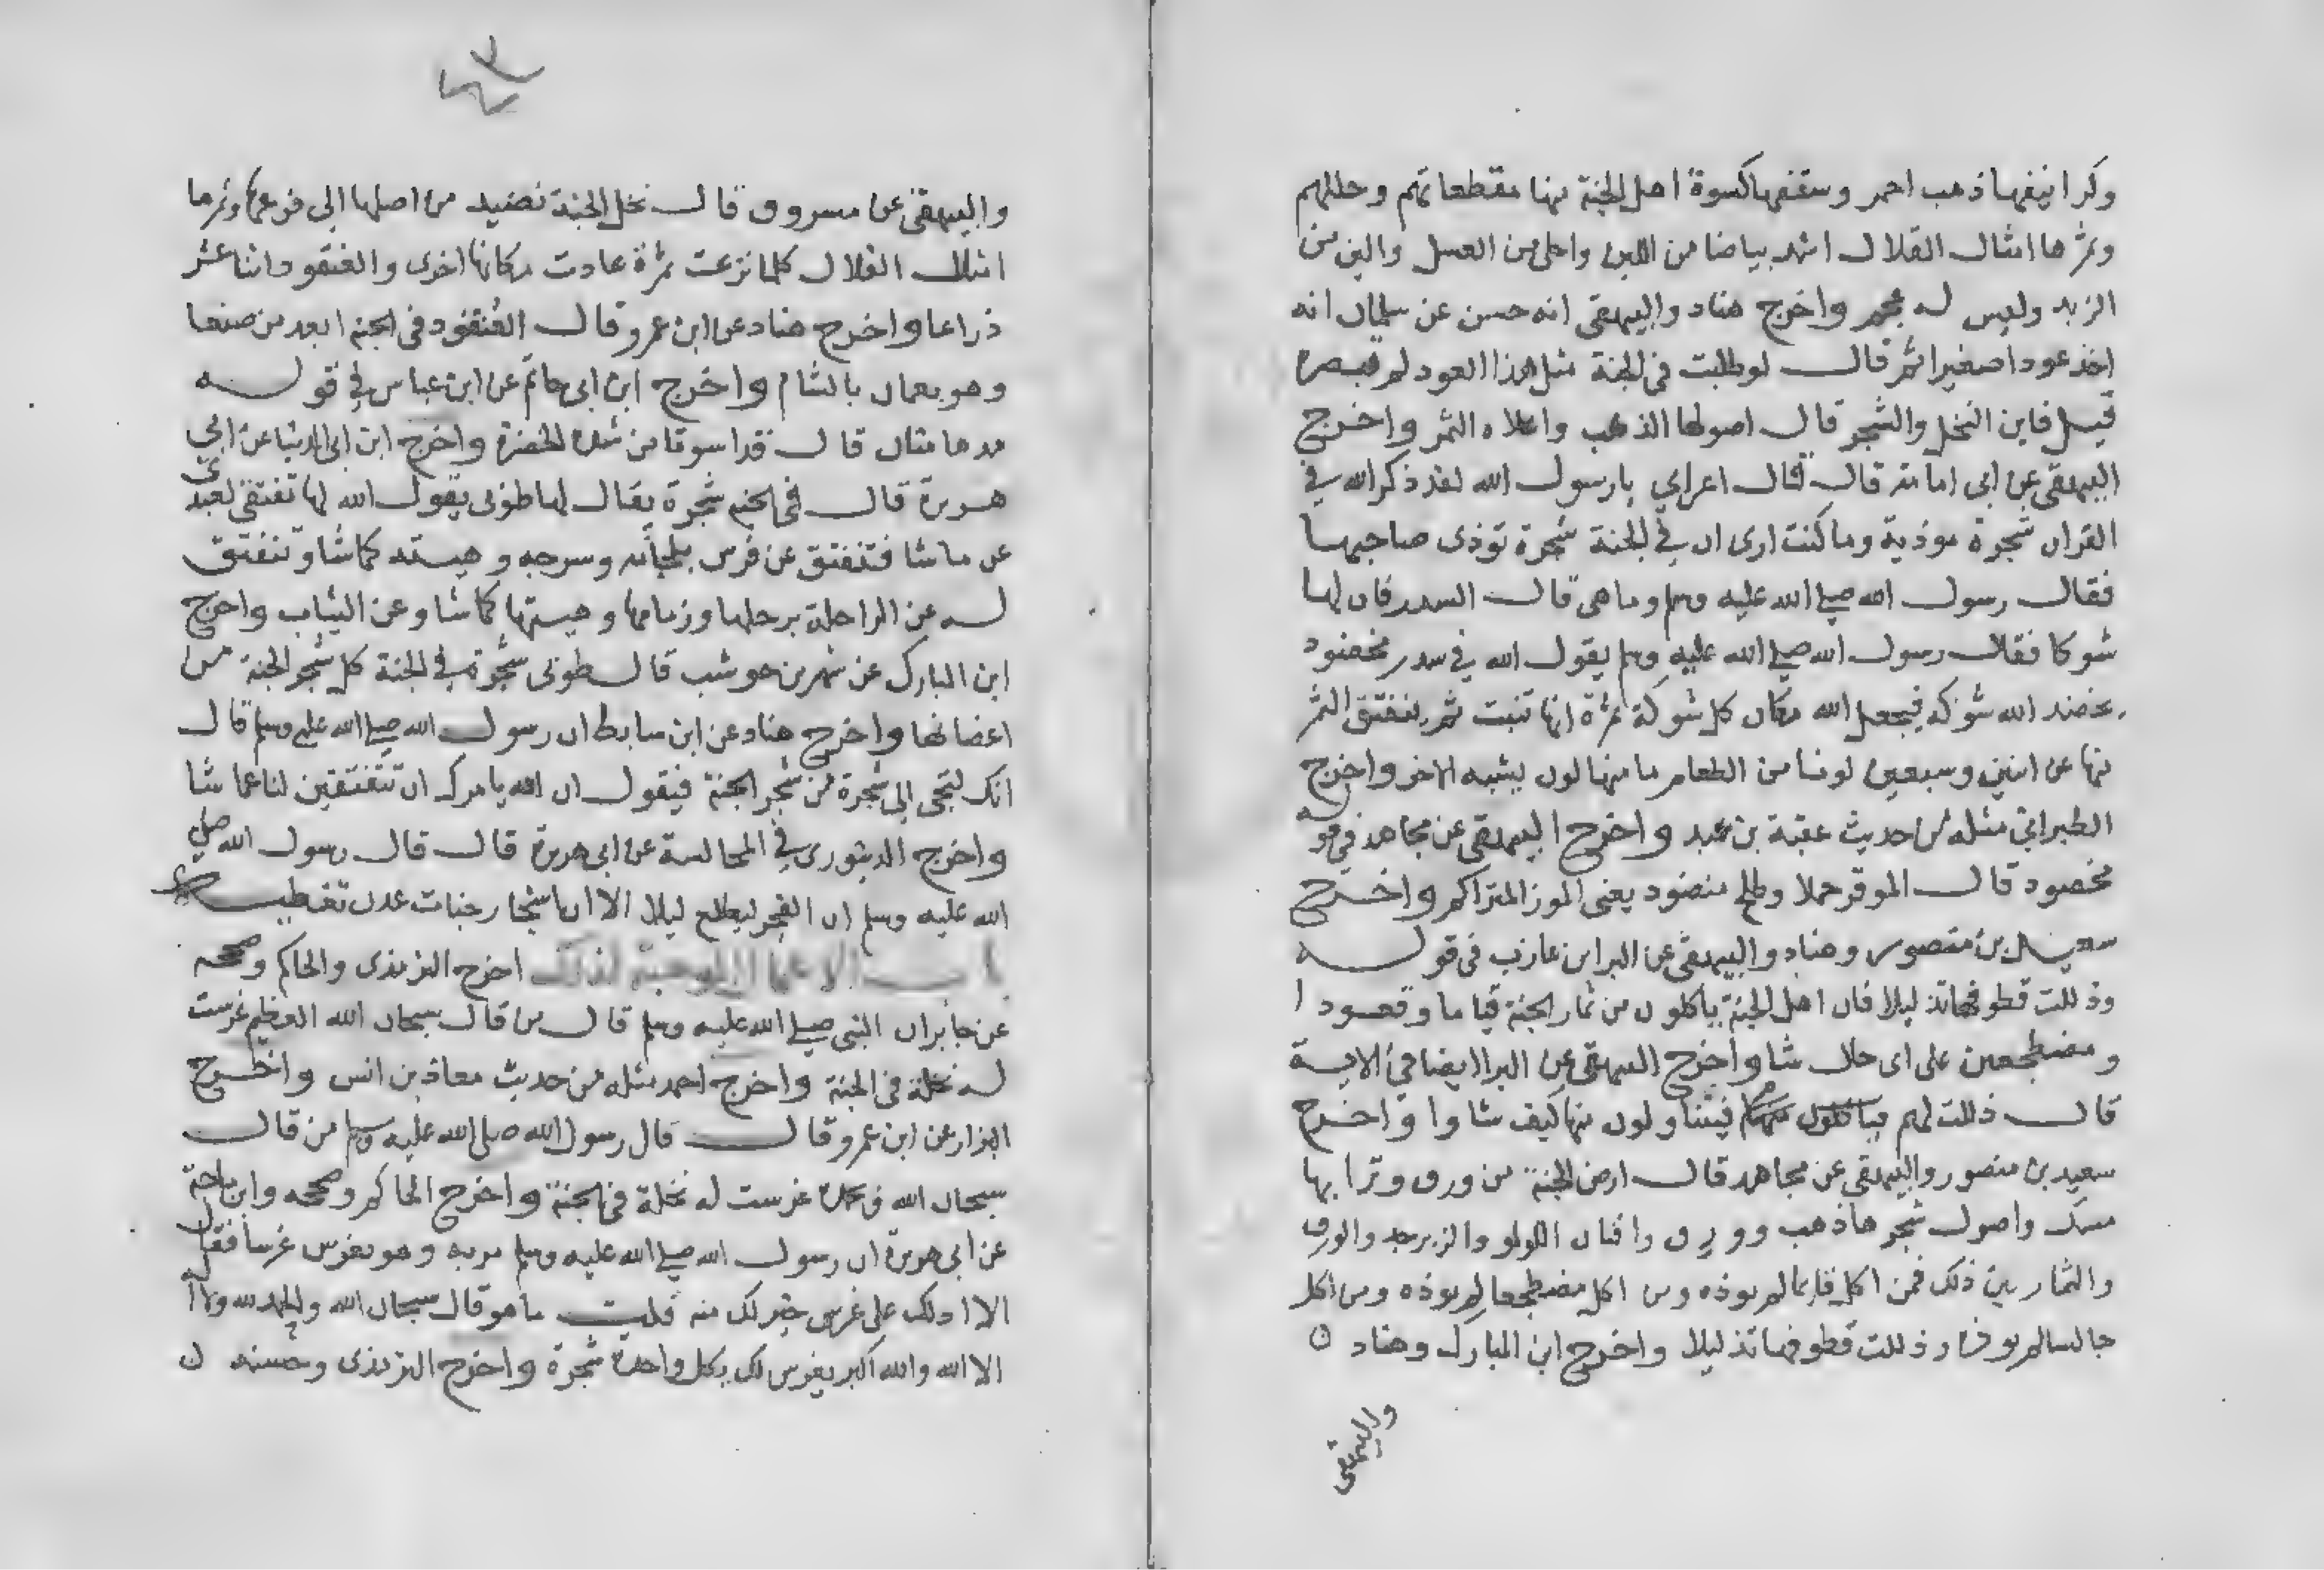 وكرانيفها ذهب احمر وسقفها كسوة اهل الجنة منها مقطعاتهم وحللهم
وثمرها امثال القلال اشد بياضا من اللبن واحلى من العسل والين من
الزبد وليس له عجم واخرج هناد والبيهقى انه حسن عن سلمان انه
اخذ عودا صغيرا ثم قال لو طلبت فى الجنة مثل هذا العود لم تبصره
قيل فاين النخل والشجر قال اصولها الذهب واعلاه الثمر واخرج
البيهقى عن ابى امامة قال قال اعرابي يا رسول الله لقد ذكر الله في
القران شجرة موذية وما كنت ارى ان في الجنة شجرة توذى صاحبها
فقال رسول الله صلى الله عليه وسلم وما هى قال السدر فان لها
شوكا فقال رسول الله صلى الله عليه وسلم يقول الله في سدر مخضود
يخضد الله شوكه فيجعل الله مكان كل شوكة ثمرة انها تنبت ثمر يتفتق الثمر
منها عن اثنين وسبعين لونا من الطعام ما منها لون يشبه الاخر واخرج
الطبراني مثله من حديث عقبة بن عبد واخرج البيهقى عن مجاهد في قوله
مخضود قال الموقر حملا وطلح منضود يعنى الموز المتراكم واخرج
سعيد بن منصور وهناد والبيهقى عن البرا بن عازب فى قوله
وذللت قطوفها تذليلا قال اهل الجنة ياكلون من ثمار الجنة قياما وقعودا
ومضطجعين على اى حال شاوا واخرج البيهقى عن البرا ايضا في الاية
قال ذللت لهم فيتناولون منها كيف شاوا واخرج
سعيد بن منصور والبيهقى عن مجاهد قال ارض الجنة من ورق وترابها
مسك واصول شجرها ذهب وورق وافنان اللولو والزبرجد والورق
والثمار بين ذلك فمن اكل قايما لم يوذه ومن اكل مضطجعا لم يوذه ومن اكل
جالسا لم يوذه وذللت قطوفها تذليلا واخرج ابن المبارك وهناد
والبيهقى
والبيهقى عن مسروق قال نخل الجنة نضيد من اصلها الى فرعها وثمرها
امثال القلال كلما نزعت ثمرة عادت مكانها اخرى والعنقود اثنا عشر
ذراعا واخرج هناد عن ابن عمرو قال العنقود فى الجنة ابعد من صنعا
وهو بعمان بالشام واخرج ابن ابى حاتم عن ابن عباس في قوله
مدهامتان قال قد اسودتا من شدة الخضرة واخرج ابن ابى الدنيا عن ابي
هريرة قال فى الجنة شجرة يقال لها طوبى يقول الله لها تفتقى لعبدى
عن ما شا فتتفتق عن فرس بلجامه وسرجه وهيئته كما شا وتتفتق
له عن الراحلة برحلها وزمامها وهيئتها كما شا وعن الثياب واخرج
ابن المبارك عن شهر بن حوشب قال طوبى شجرة في الجنة كل شجر الجنة من
اغصانها واخرج هناد عن ابن سابط ان رسول الله صلى الله عليه وسلم قال
انك لتجى الى شجرة من شجر الجنة فيقول ان الله يامرك ان تتفتقين لنا عما شا
واخرج الدينورى في المجالسة عن ابى هريرة قال قال رسول الله صلى
الله عليه وسلم ان الفجر ليطلع ليلا الا ان اشجار جنات عدن تغطيه
باب الاعمال الموجبة لذلك اخرج الترمذى والحاكم وصححه
عن جابر ان النبى صلى الله عليه وسلم قال من قال سبحان الله العظيم غرست
له نخلة فى الجنة واخرج احمد مثله من حديث معاذ بن انس واخرج
البزار عن ابن عمرو قال قال رسول الله صلى الله عليه وسلم من قال
سبحان الله وبحمده غرست له نخلة فى الجنة واخرج الحاكم وصححه وابن ماجة
عن ابى هريرة ان رسول الله صلى الله عليه وسلم مر به وهو يغرس غرسا فقال
الا ادلك على غرس خير لك منه قلت ما هو قال سبحان الله والحمد لله ولا اله
الا الله والله اكبر يغرس لك بكل واحدة شجرة واخرج الترمذى وحسنه